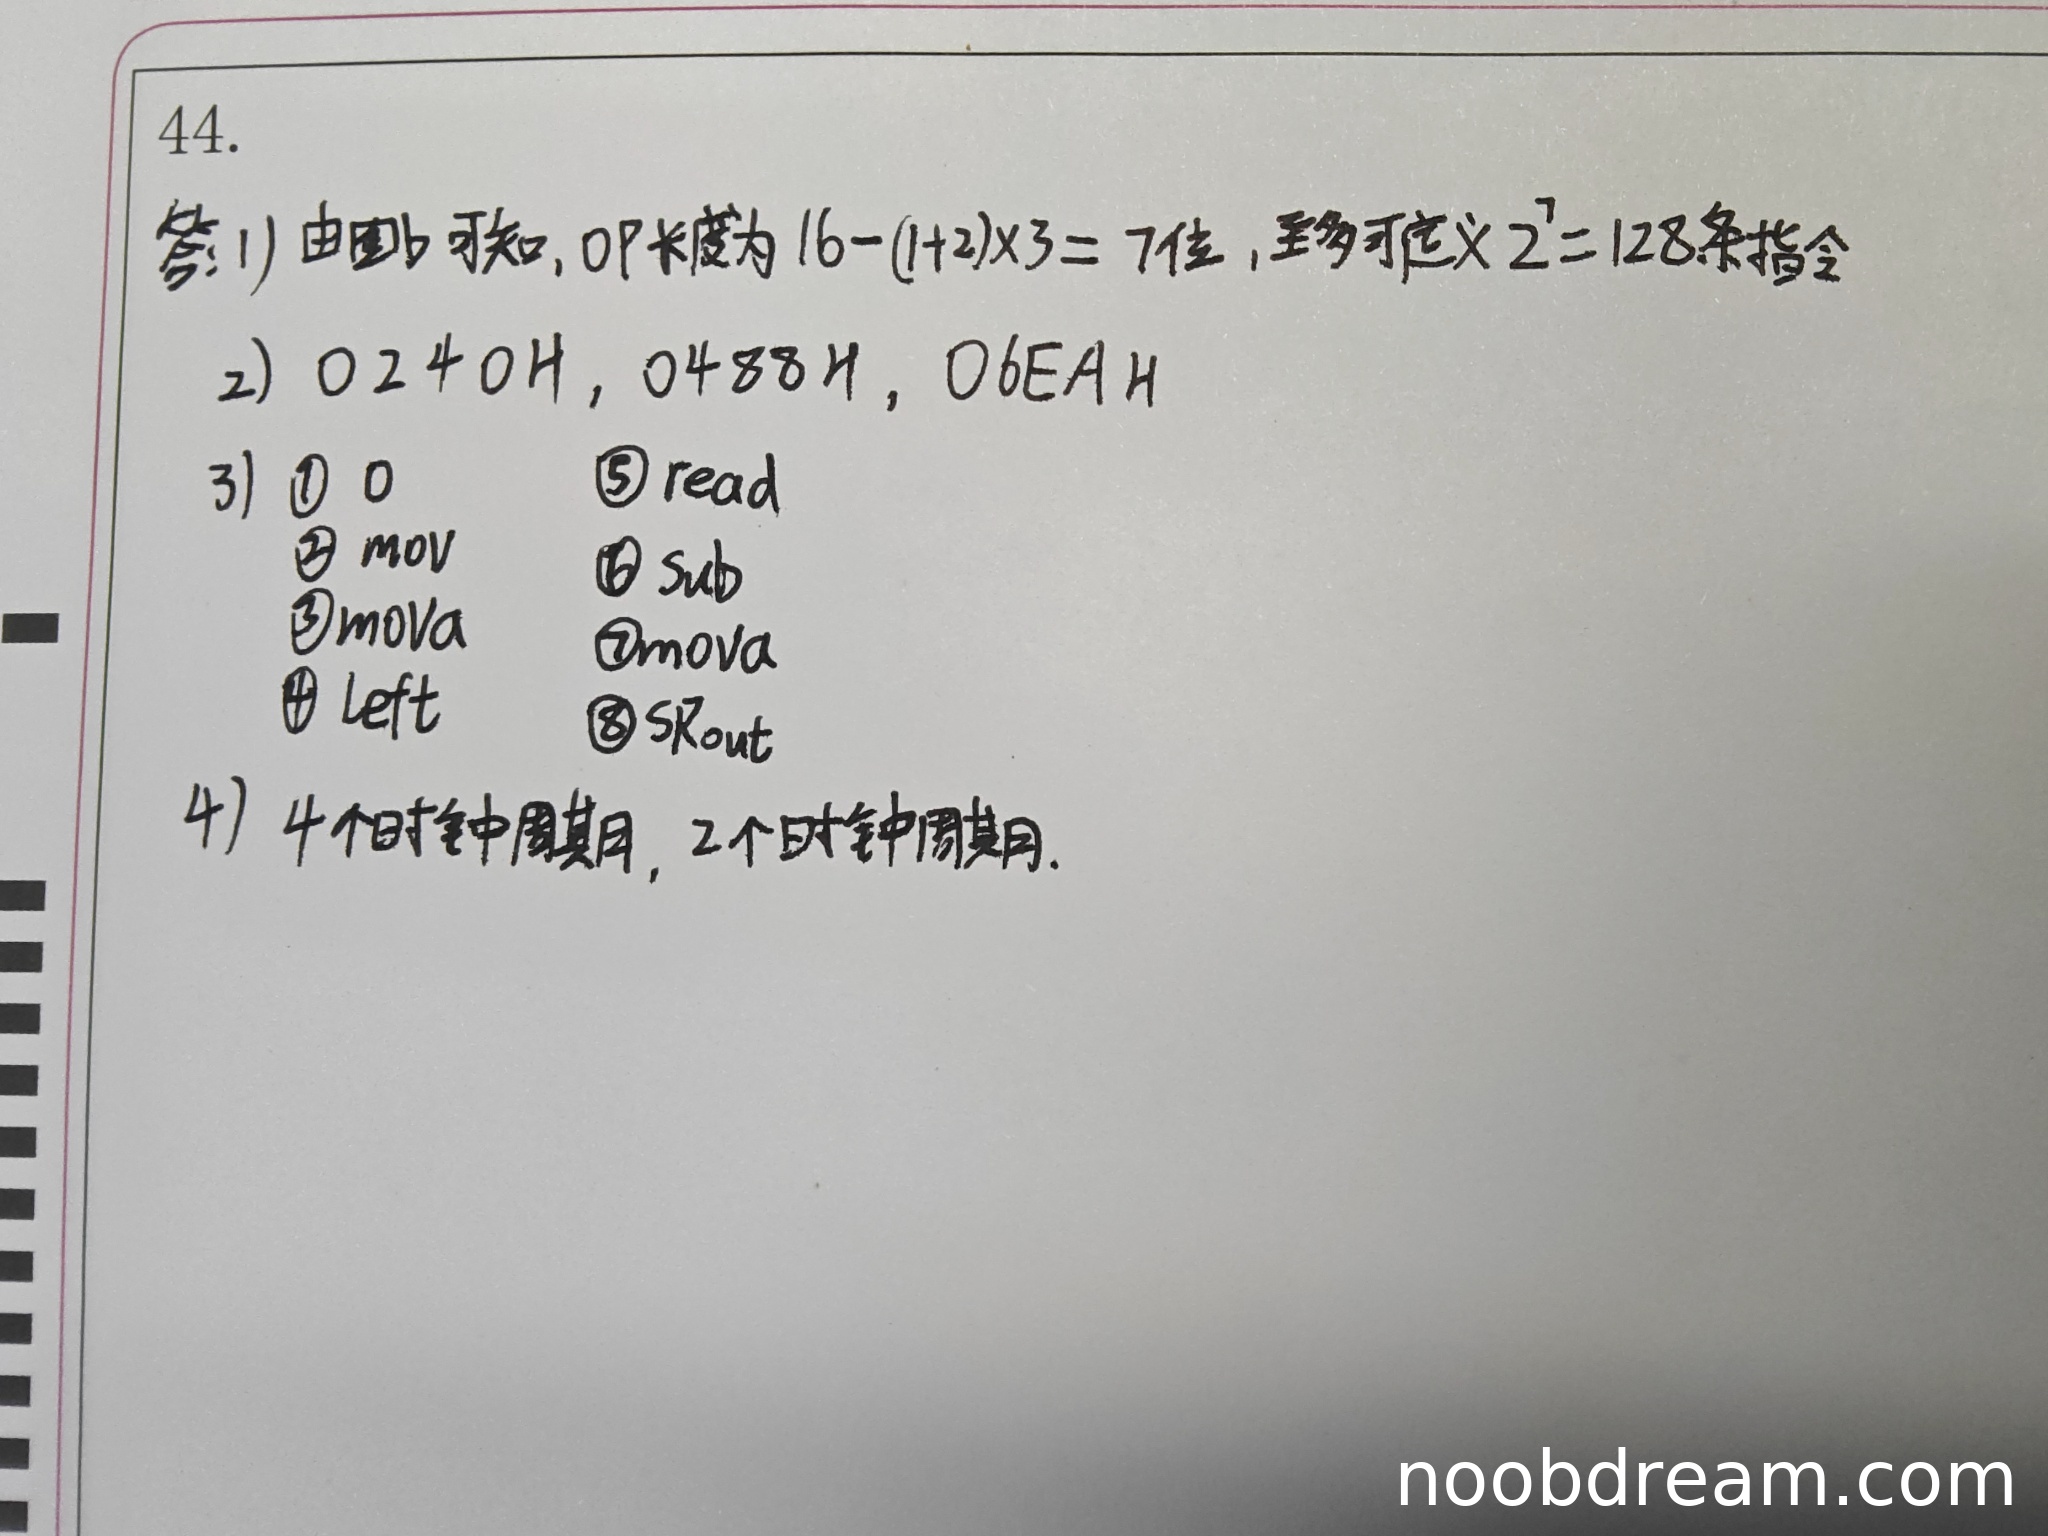 44.
答: 1) 由图b可知, OP长度为 16-(1+2)×3= 7位, 至多可定义 2⁷=128条指令
2) 0240H, 0488H, 06EAH
3) ① 0 ⑤ read
② mov ⑥ sub
③ mova ⑦ mova
④ left ⑧ SRout
4) 4个时钟周期, 2个时钟周期.
noobdream.com